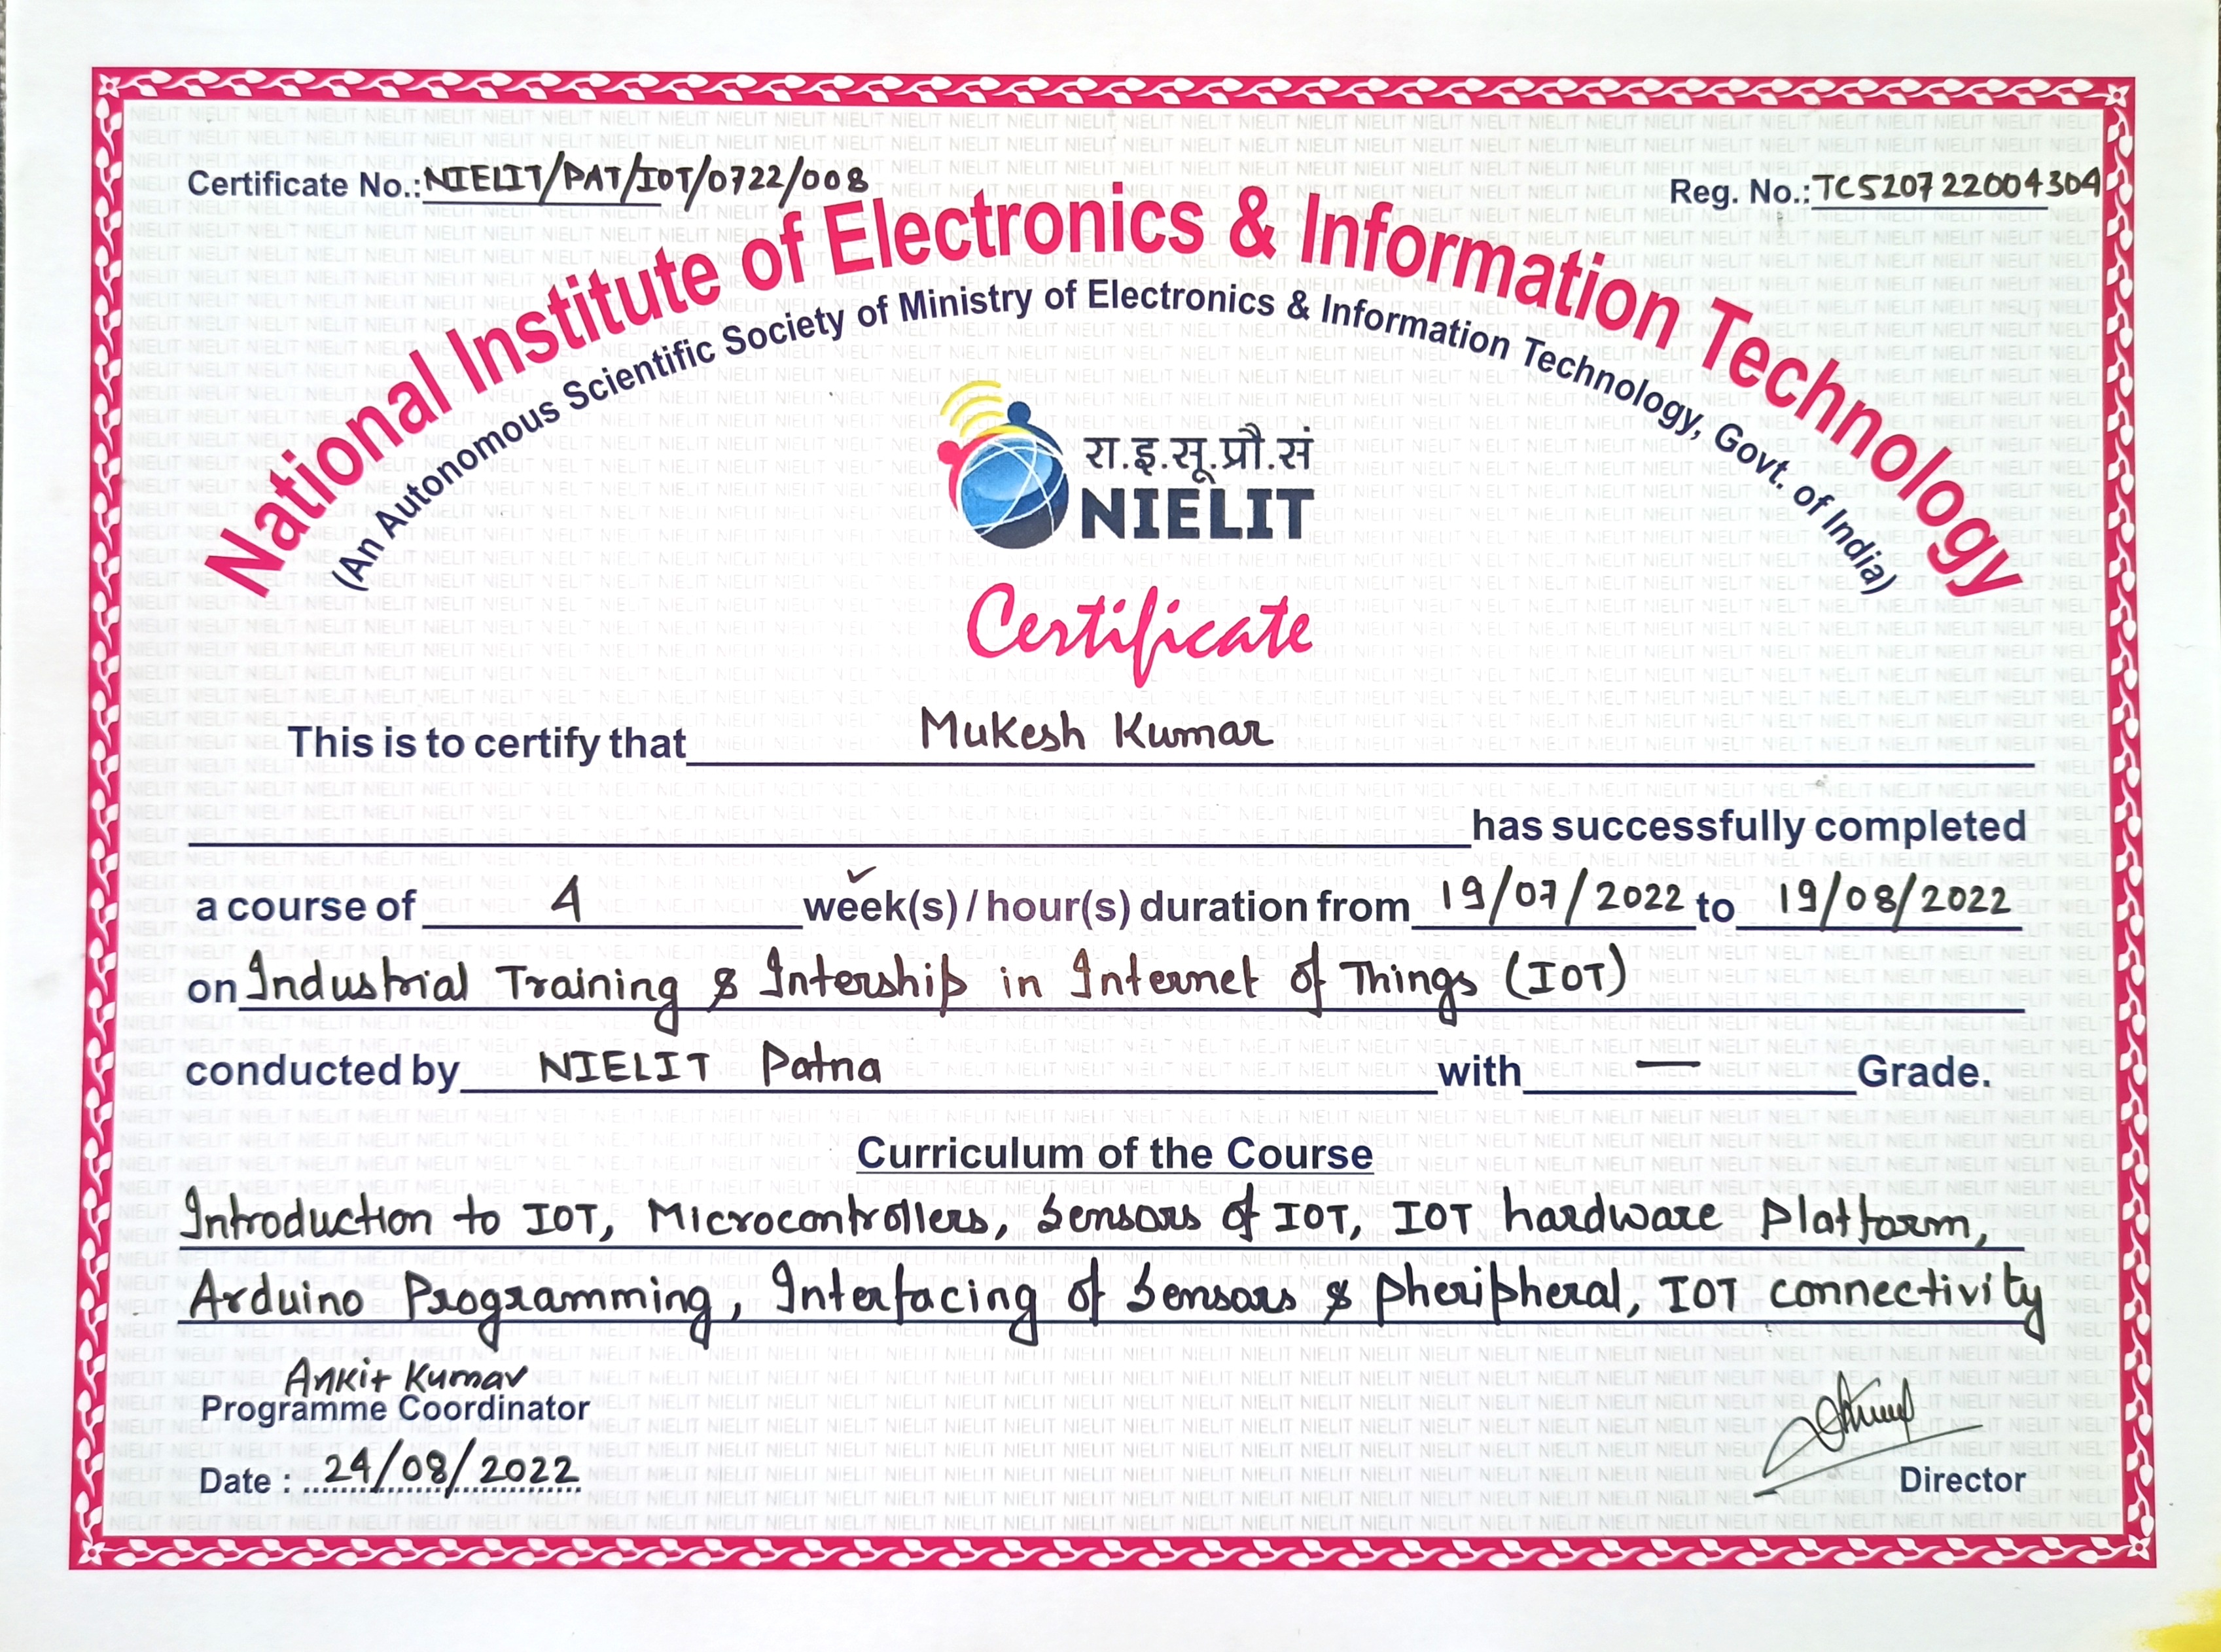 Certificate No.: NIELIT/PAT/IOT/0722/008
Reg. No.: TC520722004304
National Institute of Electronics & Information Technology
(An Autonomous Scientific Society of Ministry of Electronics & Information Technology, Govt. of India)
रा.इ.सू.प्रौ.सं
NIELIT
Certificate
This is to certify that Mukesh Kumar
has successfully completed
a course of 4 week(s) / hour(s) duration from 19/07/2022 to 19/08/2022
on Industrial Training & Intership in Internet of Things (IOT)
conducted by NIELIT Patna with — Grade.
Curriculum of the Course
Introduction to IOT, Microcontrollers, Sensors of IOT, IOT hardware Platform,
Arduino Programming, Interfacing of Sensors & Pheripheral, IOT connectivity
Ankit Kumar
Programme Coordinator
Date : 24/08/2022
Director